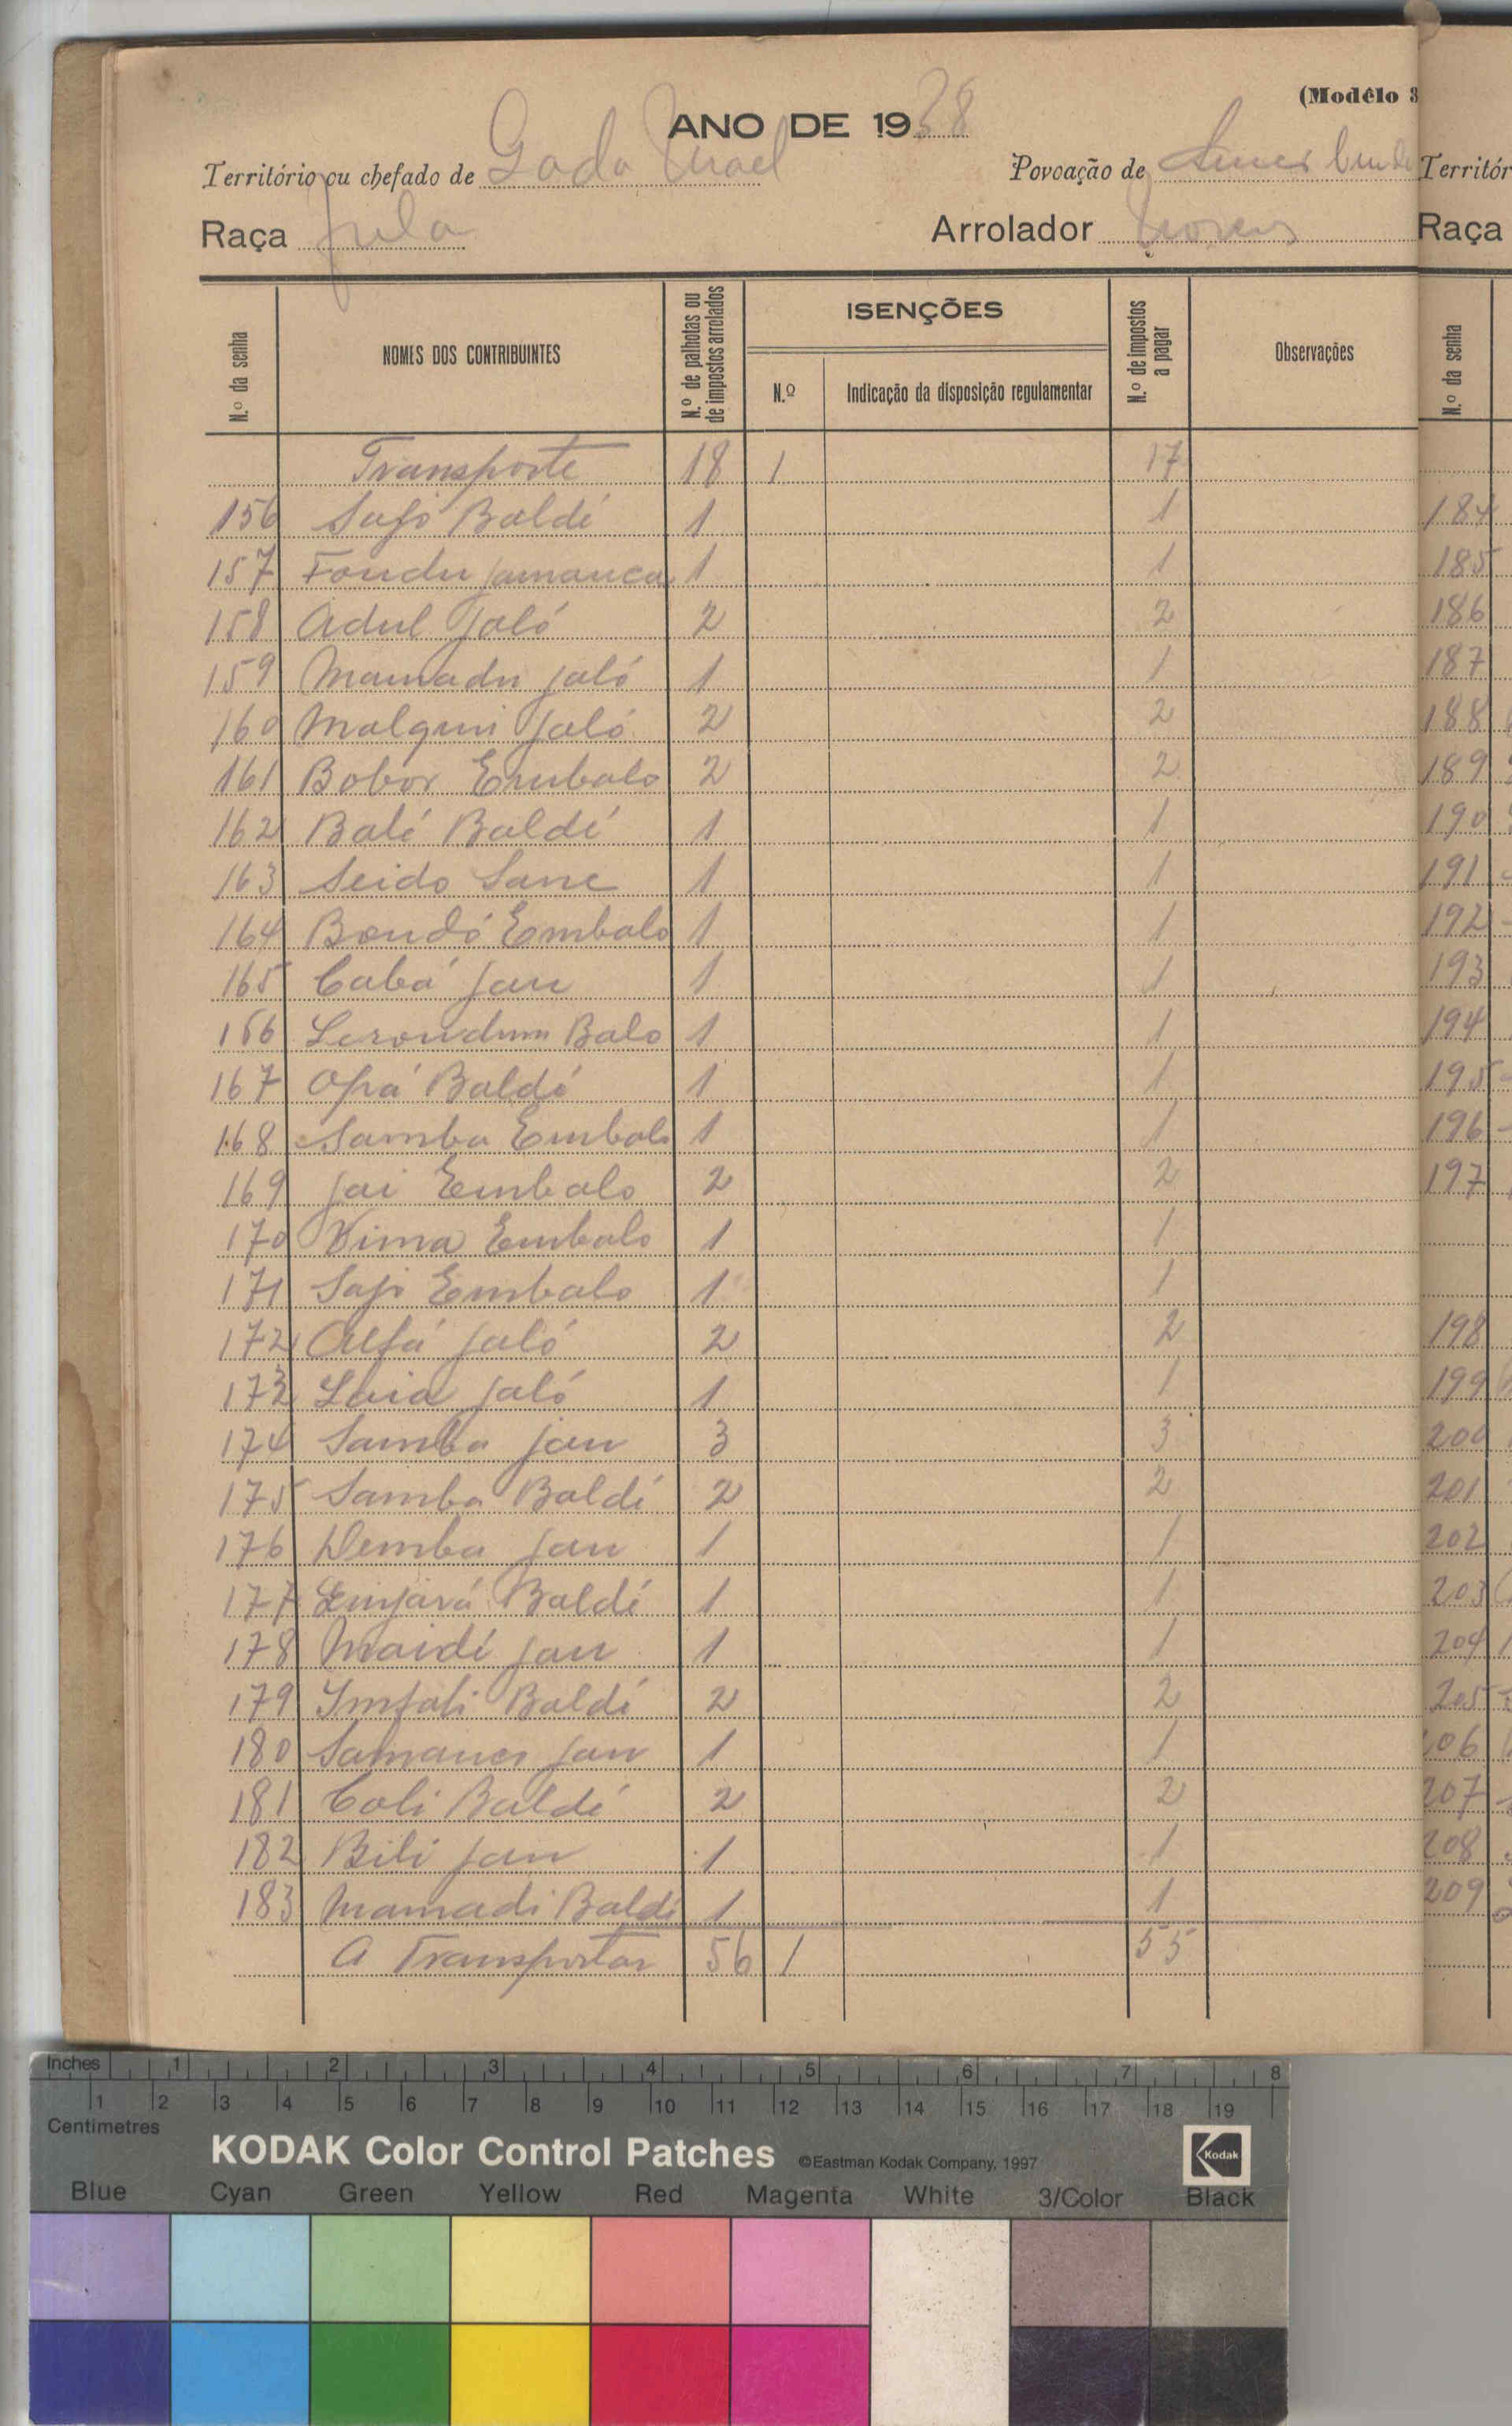 (Modêlo 3
ANO DE 1938
Território ou chefado de Gada Mael Povoação de
Raça fula Arrolador
N.º da senha NOMES DOS CONTRIBUINTES N.º de palhotas ou de impostos arrolados ISENÇÕES N.º Indicação da disposição regulamentar N.º de impostos a pagar Observações
Transporte 18 1 17
156 Sajo Baldé 1 1
157 Jamanca 1 1
158 Adul Jaló 2 2
159 Mamadu Jaló 1 1
160 Malquin Jaló 2 2
161 Bobor Embalo 2 2
162 Balé Baldé 1 1
163 Seido Sane 1 1
164 Bondó Embalo 1 1
165 Cabá Jau 1 1
166 Balo 1 1
167 Opá Baldé 1 1
168 Samba Embalo 1 1
169 Jai Embalo 2 2
170 Embalo 1 1
171 Sajo Embalo 1 1
172 Alfá Jaló 2 2
173 Laia Jaló 1 1
174 Samba Jau 3 3
175 Samba Baldé 2 2
176 Demba Jau 1 1
177 Baldé 1 1
178 Maidé Jau 1 1
179 Infali Baldé 2 2
180 Jau 1 1
181 Coli Baldé 2 2
182 Bili Jau 1 1
183 Mamadi Baldé 1 1
A Transportar 56 1 55
Territór
Raça
N.º da senha
184
185
186
187
188
189
190
191
192
193
194
195
196
197
198
199
200
201
202
203
204
205
206
207
208
209
Inches 1 2 3 4 5 6 7 8
1 2 3 4 5 6 7 8 9 10 11 12 13 14 15 16 17 18 19
Centimetres
KODAK Color Control Patches ©Eastman Kodak Company, 1997 Kodak
Blue Cyan Green Yellow Red Magenta White 3/Color Black